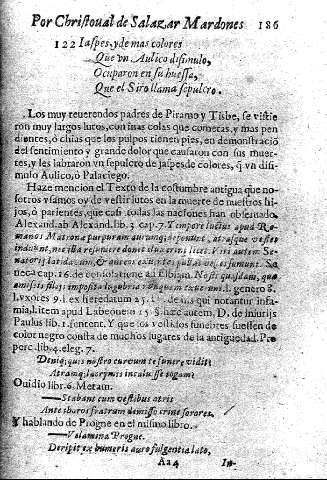 Por Christoual de Salazar Mardones 186
122 Iaspes, y de mas colores
Que vn Aulico disimulo,
Ocuparon en su huessa,
Que el Siro llama sepulcro.
Los muy reuerendos padres de Piramo y Tisbe, se vistie
ron muy largos lutos, con mas colas que cometas, y mas pen
dientes, ò chias que los pulpos tienen pies, en demonstració
del sentimiento y grande dolor que causaron con sus muer
tes, y les labraron vn sepulcro de jaspes de colores, q̃ vn disi
mulo Aulico, ò Palaciego.
Haze mencion el Texto de la costumbre antigua que no-
sotros vsamos oy de vestir lutos en la muerte de nuestros hi
jos, ò parientes, que casi todas las naciones han obseruado.
Alexand. ab Alexand. lib. 3. cap. 7. Tempore luctus apud Ro-
manos Matronæ purpuram aurumq; deponunt,
neca cap. 16. de consolatione ad Elbiam.
l. genero 8.
l. vxores 9. l. ex heredatum de his qui notantur infa-
mia, l. item apud Labeonem 15. §. ait autem, D. de iniurijs
Paulus lib. 1. sentent. Y que los vestidos funebres fuessen de
color negro consta de muchos lugares de la antiguedad. Pro
perc. lib. 4. eleg. 7.
Deniq; quis nostro curuum te funere vidit?
Atramq; lacrymis incaluisse togam?
Ouidio libr. 6. Metam.
Stabant cum vestibus atris
Ante thoros fratrum demisso crine sorores.
Y hablando de Progne en el mismo libro.
Velamina Progne.
Deripit ex humeris auro fulgentia lato,
Aa4 In-